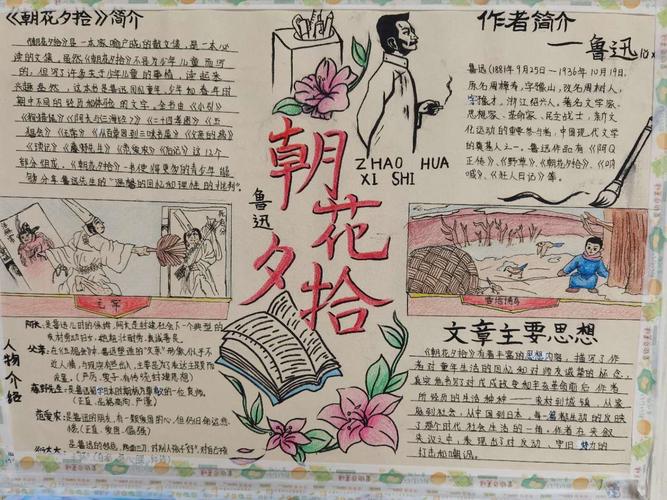 《朝花夕拾》简介
《朝花夕拾》是一本家喻户成的散文集,是一本必
读的文集,虽然《朝花夕拾》不是为少年儿童而写
的,但写了许多关于少年儿童的事情,读起来
兴趣盎然,
期中不同的经历和体验的文字,全书由《小引》
《狗·猫·鼠》《阿长与《山海经》》《二十四孝图》《五
猖会》《无常》《从百草园到三味书屋》《父亲的病》
《琐记》《藤野先生》《范爱农》《后记》这12个
部分组成,《朝花夕拾》一书使将更多的青少年能
够分享鲁迅先生的“温馨的回忆和理性的批判”。
ZHAO HUA
XI SHI
朝花夕拾
鲁迅
作者简介
——鲁迅
鲁迅(1881年9月25日—1936年10月19日,
原名周樟寿,字豫山,改名周树人,
字豫才,浙江绍兴人。著名文学家、
思想家、革命家、民主战士,新文
化运动的重要参与者,中国现代文学
的奠基人之一。鲁迅作品有《阿Q
正传》、《野草》、《朝花夕拾》、《呐
喊》、《狂人日记》等。
无常
雪地捕鸟
人物介绍
阿长:是鲁迅儿时的保姆,阿长是封建社会下一个典型的
农村劳动妇女,她粗壮耐劳,真诚善良。
父亲:在《五猖会》中鲁迅塑造的“父亲”形象,似乎不
近人情,
藤野先生:
(正直、
范爱农:是鲁迅的朋友,有一颗爱国的心,但仍旧命运悲
惨。(正直、爱国、倔强)
文章主要思想
《朝花夕拾》有着丰富的思想内涵,描写了作
者对童年生活的回忆和对师友诚挚的怀念,
真实地书写了对戊戌政变和辛亥革命前后,作者
所经历的生活种种——农村到城镇,从家
庭到社会,从中国到日本,每一篇都生动的反映
了那个时代社会生活的一角。作者在夹叙
夹议之中,表现出了对反动、守旧势力的
抨击和嘲讽。